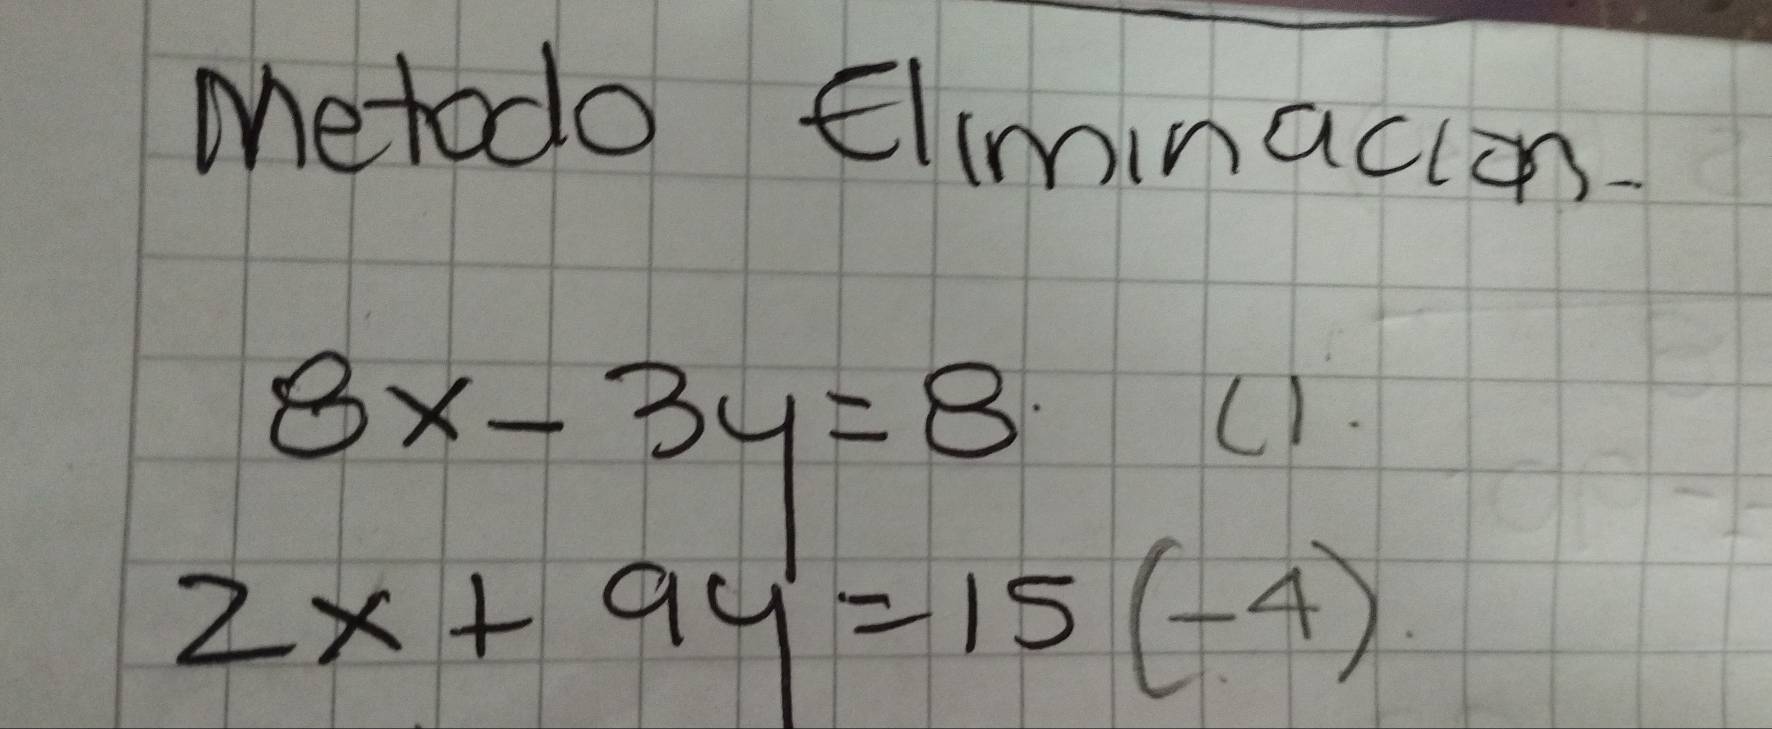 Metodo Eliminacion.
8x - 3y = 8. (1.
2x + 9y = 15 (-4).